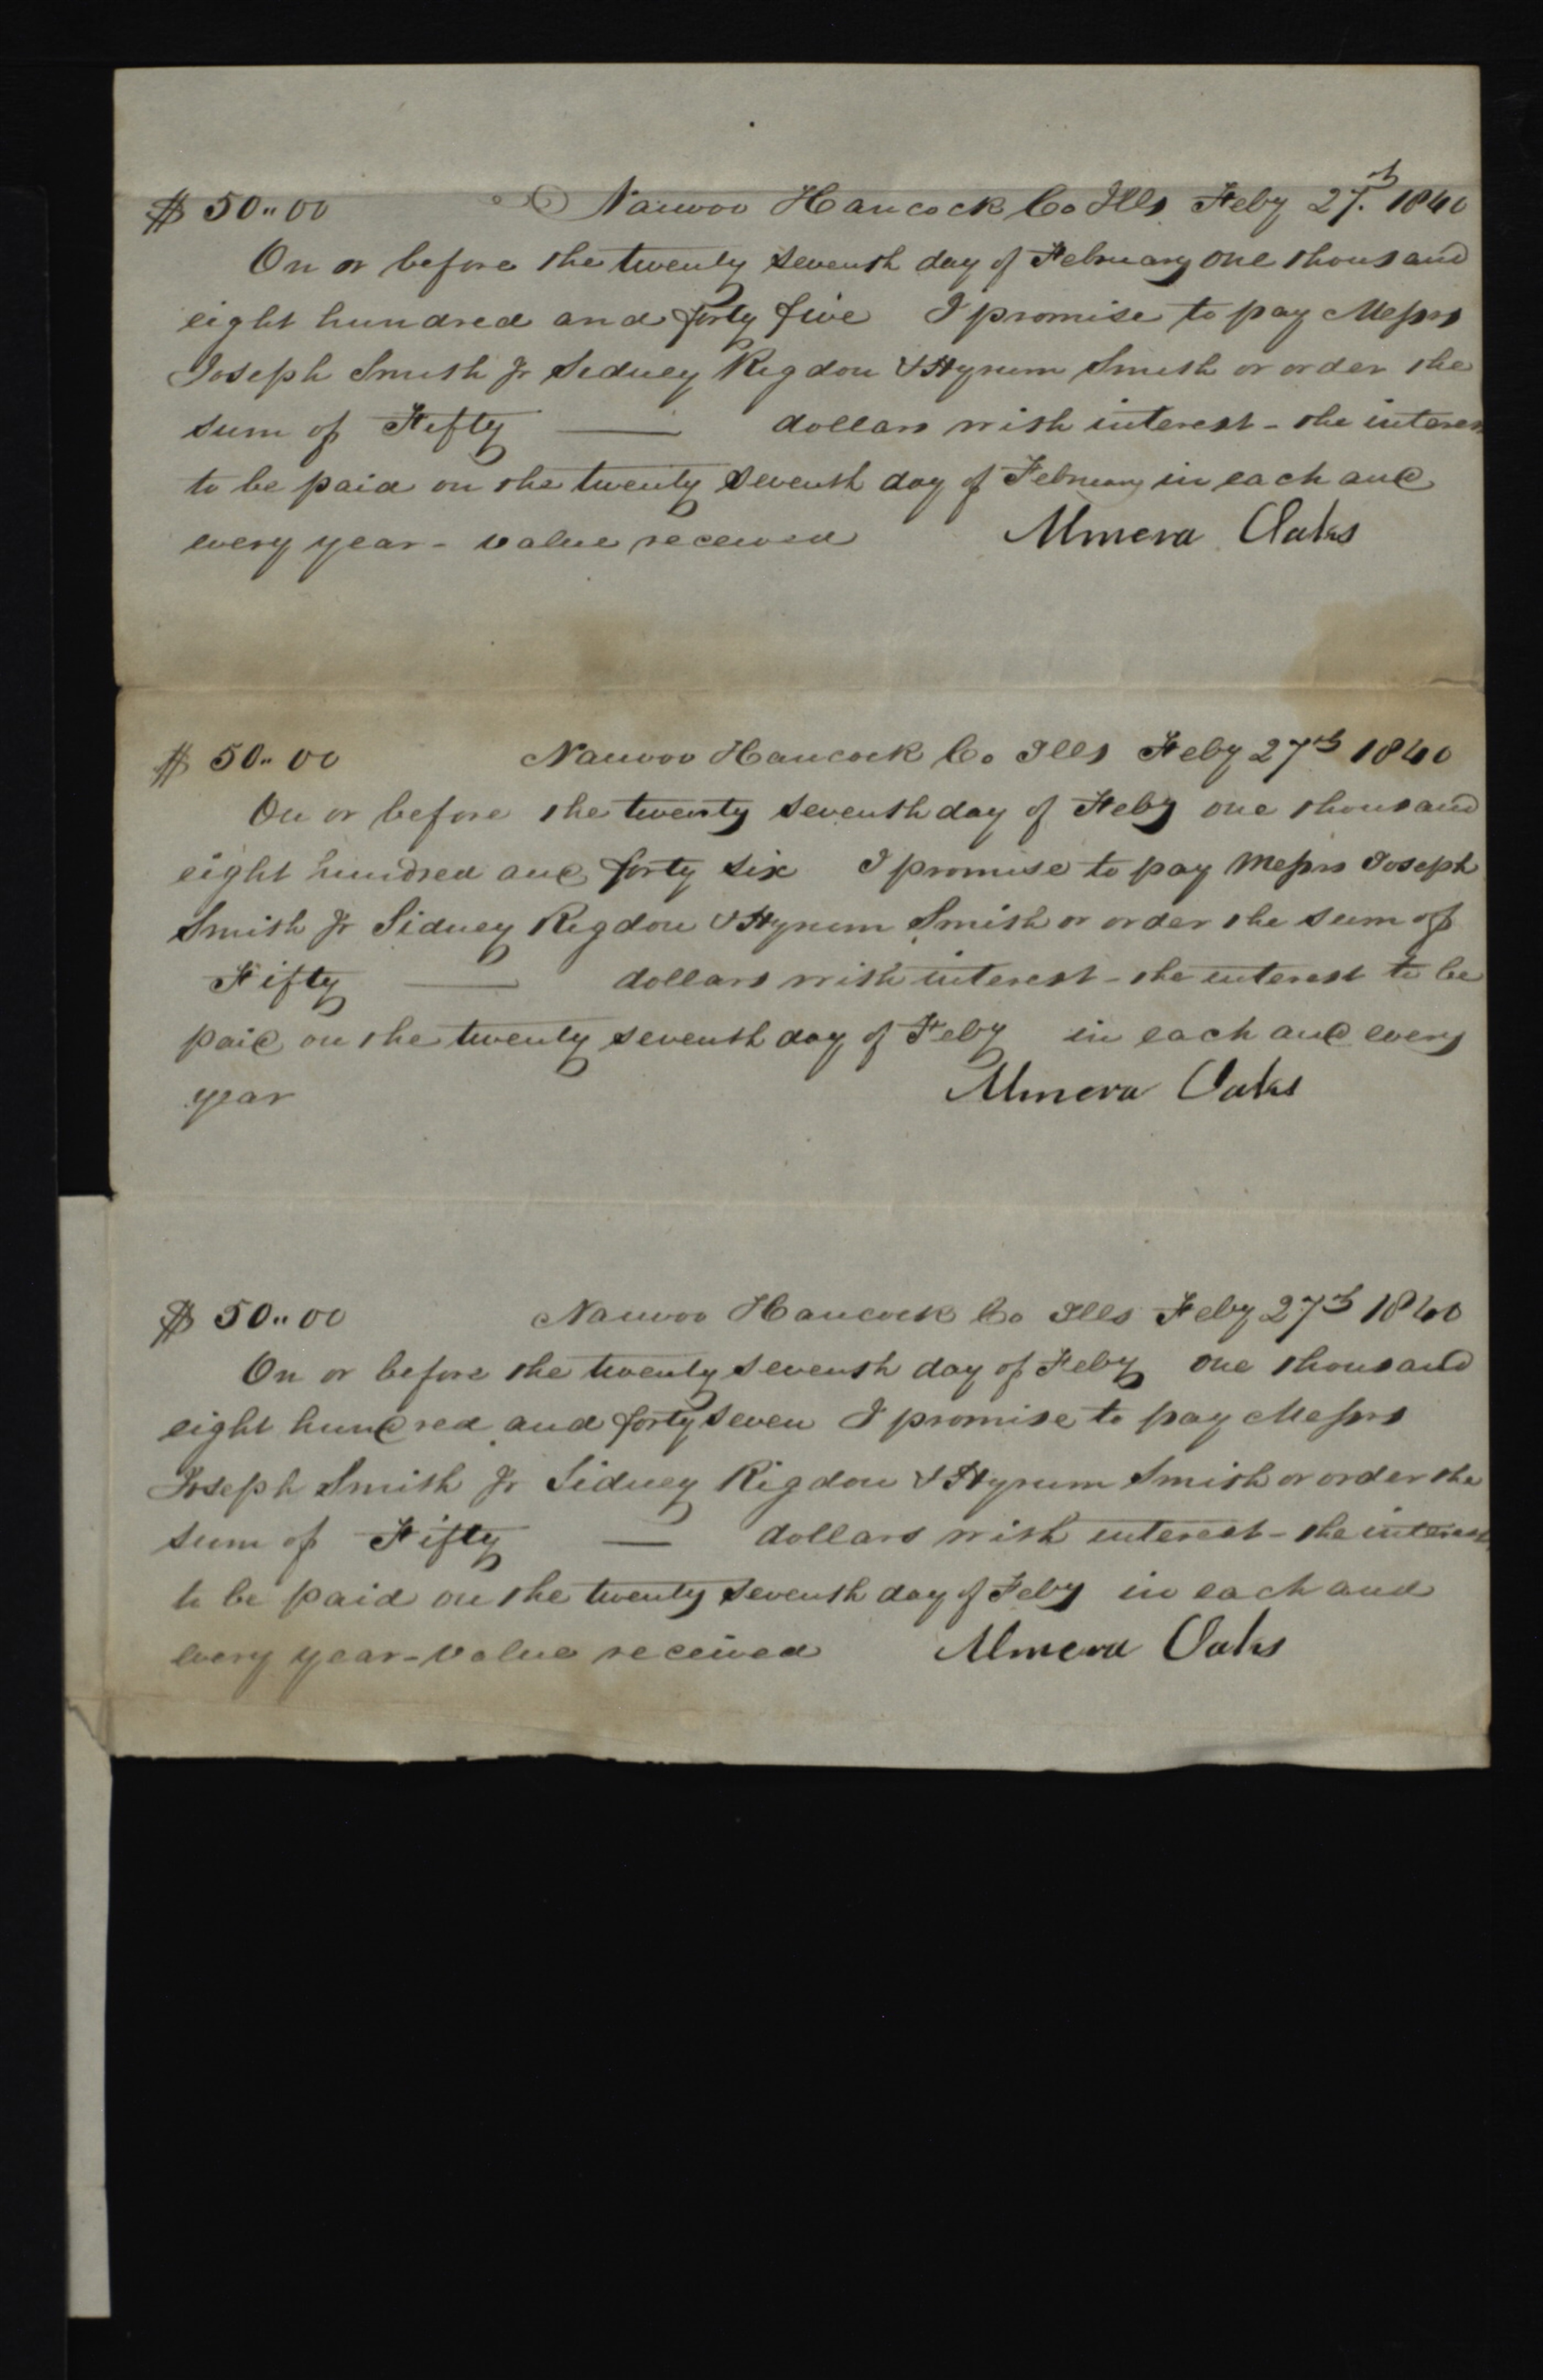 $ 50.. 00 Nauvoo Hancock Co Ills Feby 27.th 1840
On or before the twenty seventh day of February one thousand
eight hundred and forty five I promise to pay Messrs
Joseph Smith Jr Sidney Rigdon & Hyrum Smith or order the
sum of Fifty —— dollars with interest - the interest
to be paid on the twenty seventh day of February in each and
every year - value received Almera Oaks
$ 50.. 00 Nauvoo Hancock Co Ills Feby 27th 1840
On or before the twenty seventh day of Feby one thousand
eight hundred and forty six I promise to pay Messrs Joseph
Smith Jr Sidney Rigdon & Hyrum Smith or order the sum of
Fifty —— dollars with interest - the interest to be
paid on the twenty seventh day of Feby in each and every
year Almera Oaks
$ 50.. 00 Nauvoo Hancock Co Ills Feby 27th 1840
On or before the twenty seventh day of Feby one thousand
eight hundred and forty seven I promise to pay Messrs
Joseph Smith Jr Sidney Rigdon & Hyrum Smith or order the
sum of Fifty — dollars with interest - the interest
to be paid on the twenty seventh day of Feby in each and
every year - value received Almera Oaks